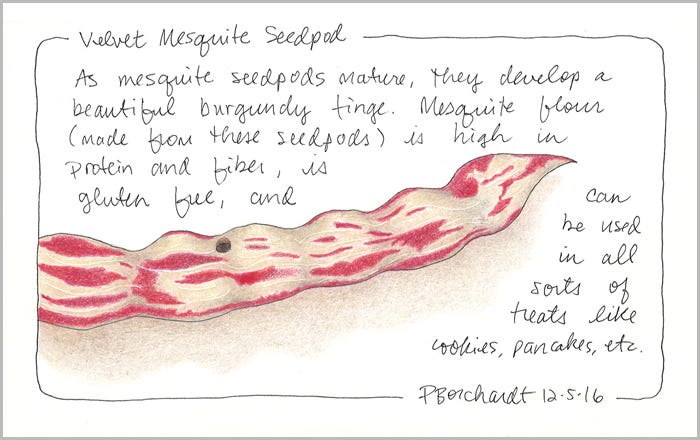 Velvet Mesquite Seedpod
As mesquite seedpods mature, they develop a
beautiful burgundy tinge. Mesquite flour
(made from these seedpods) is high in
protein and fiber, is
gluten free, and
can
be used
in all
sorts of
treats like
cookies, pancakes, etc.
PBorchardt 12.5.16